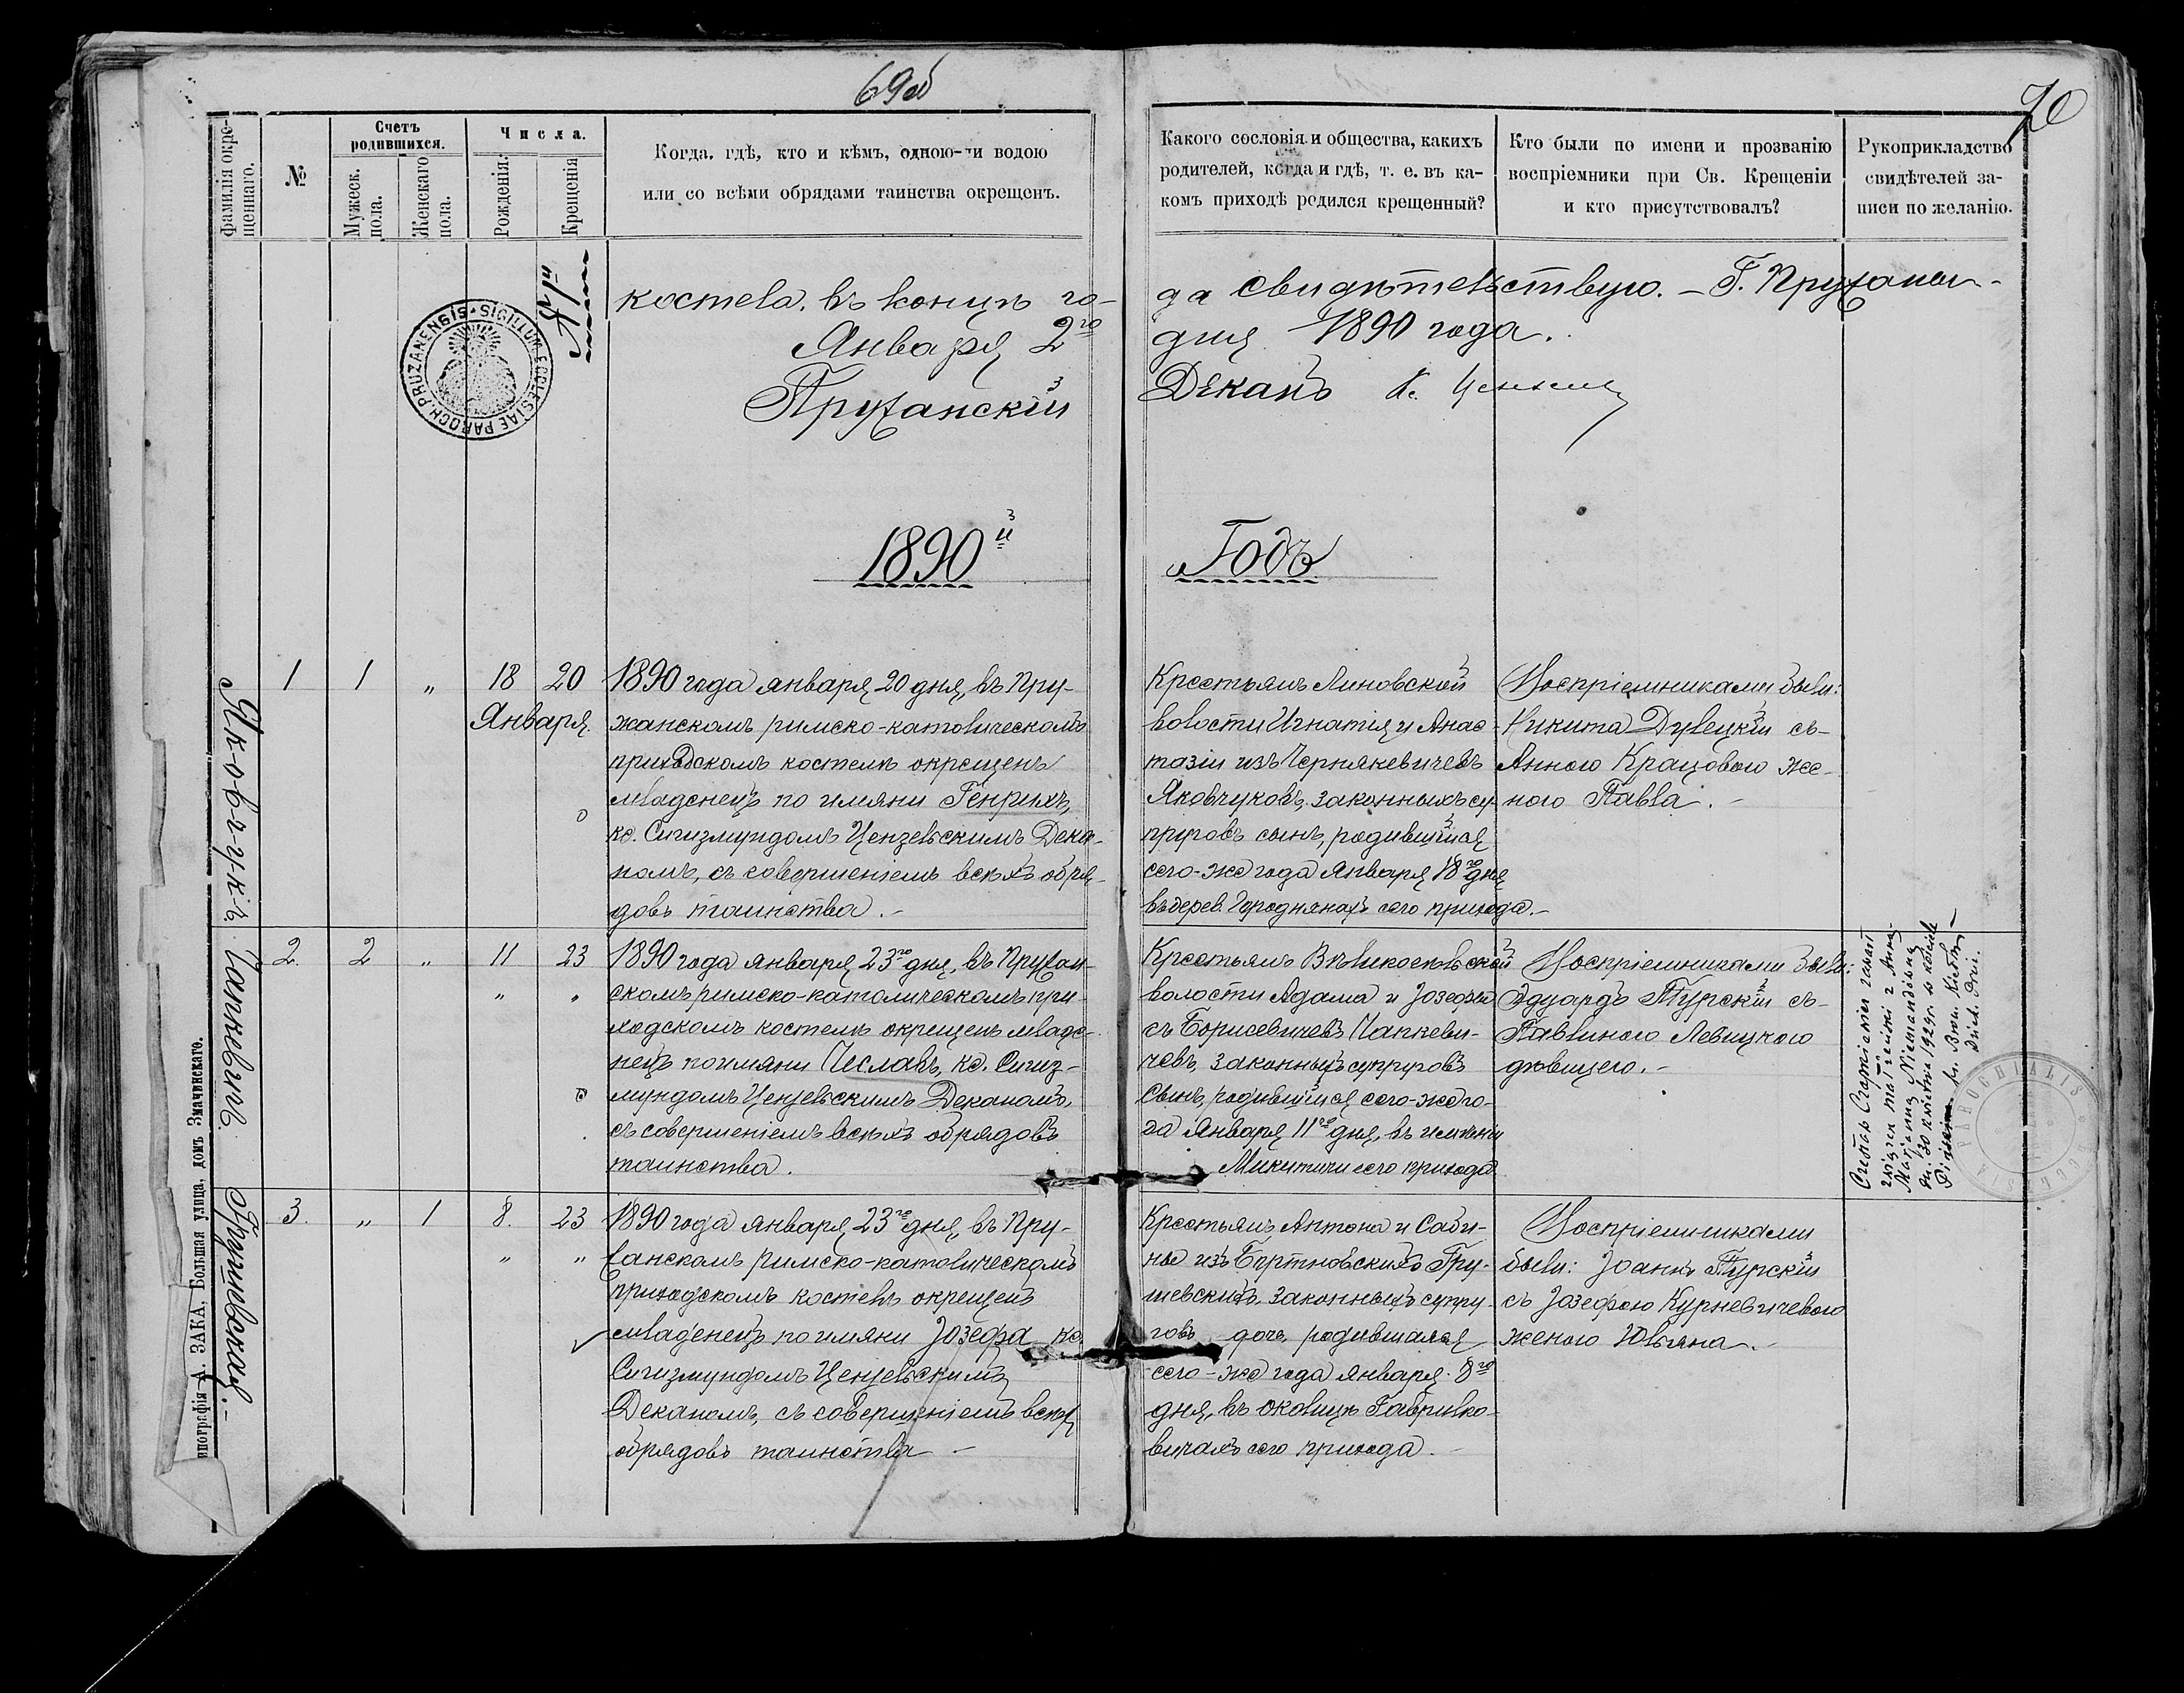 69об
70
Фамилія окре-
щеннаго.
№
Счетъ
родившихся.
Мужеск.
пола.
Женскаго
пола.
Числа.
Рожденія.
Крещенія
Когда, гдѣ, кто и кѣмъ, одною-ли водою
или со всѣми обрядами таинства окрещенъ.
Какого сословія и общества, какихъ
родителей, когда и гдѣ, т. е. въ ка-
комъ приходѣ родился крещенный?
Кто были по имени и прозванію
воспріемники при Св. Крещеніи
и кто присутствовалъ?
Рукоприкладство
свидѣтелей за-
писи по желанію.
SIGILLUM ECCLESIAE PAROCH. PRUZANENSIS
костела, въ концѣ го-
да свидѣтельствую. – Г. Пружаны
Января 2го
дня 1890 года.
Пружанскій
Деканъ К.
1890й
Годъ
Яковчукъ.
1
1
„
18
20
Января.
1890 года января 20 дня, въ Пру-
жанскомъ римско-католическомъ
приходскомъ костелѣ окрещенъ
младенецъ по имяни Генрихъ,
кс. Сигизмундомъ Цензевскимъ Дека-
номъ, съ совершеніемъ всѣхъ обря-
довъ таинства. –
Крестьянъ Линовской
волости Игнатія и Анас-
тазіи изъ Чернякевичевъ
Яковчуковъ, законныхъ су-
пруговъ сынъ, родившійся
сего-же года Января 18го дня
въ дерев. Городнянахъ сего прихода. –
Воспріемниками были:
Никита Дулецкій съ
Анною Крацовою же-
ною Павла. –
Папкевичъ.
2.
2
„
11
23
„
„
1890 года января 23го дня, въ Пружан-
скомъ римско-католическомъ при-
ходскомъ костелѣ окрещенъ младе-
нецъ по имяни Чеславъ, кс. Сигиз-
мундомъ Цензевскимъ Деканомъ,
съ совершеніемъ всѣхъ обрядовъ
таинства.
Крестьянъ Великосельской
волости Адама и Іозефы
съ Борисевичевъ Папкеви-
чевъ, законныхъ супруговъ
сынъ, родившійся сего-же го-
да Января 11го дня, въ имѣніи
Микитичи сего прихода
Воспріемниками были:
Эдуардъ Турскій съ
Павлиною Левицкою
дѣвицею. –
Czesław
związek małżeński z Anną
Marjanną
dn. 30 kwietnia 1929 r. w kościele
PAROCHIALIS
Грушевская. –
3.
„
1
8.
23
„
„
1890 года января 23го дня, въ Пру-
жанскомъ римско-католическомъ
приходскомъ костелѣ окрещенъ
младенецъ по имяни Іозефа кс.
Сигизмундомъ Цензевскимъ
Деканомъ, съ совершеніемъ всѣхъ
обрядовъ таинства –
Крестьянъ Антона и Саби-
ны изъ Бортновскихъ Гру-
шевскихъ, законныхъ супру-
говъ дочь, родившаяся
сего-же года января 8го
дня, въ околицѣ Габрилко-
вичахъ сего прихода. –
Воспріемниками
были: Іоаннъ Турскій
съ Іозефою Курневичевою
женою Юльяна. –
ипографія А. ЗАКА, Большая улица, домъ Значинскаго.